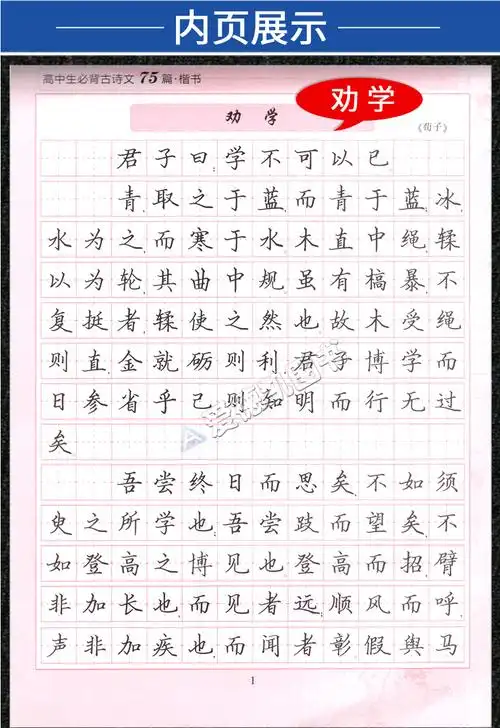 内页展示
高中生必背古诗文75篇·楷书
劝学
劝学
《荀子》
君子曰学不可以已
青取之于蓝而青于蓝冰
水为之而寒于水木直中绳輮
以为轮其曲中规虽有槁暴不
复挺者輮使之然也故木受绳
则直金就砺则利君子博学而
日参省乎己则知明而行无过
矣
吾尝终日而思矣不如须
臾之所学也吾尝跂而望矣不
如登高之博见也登高而招臂
非加长也而见者远顺风而呼
声非加疾也而闻者彰假舆马
1